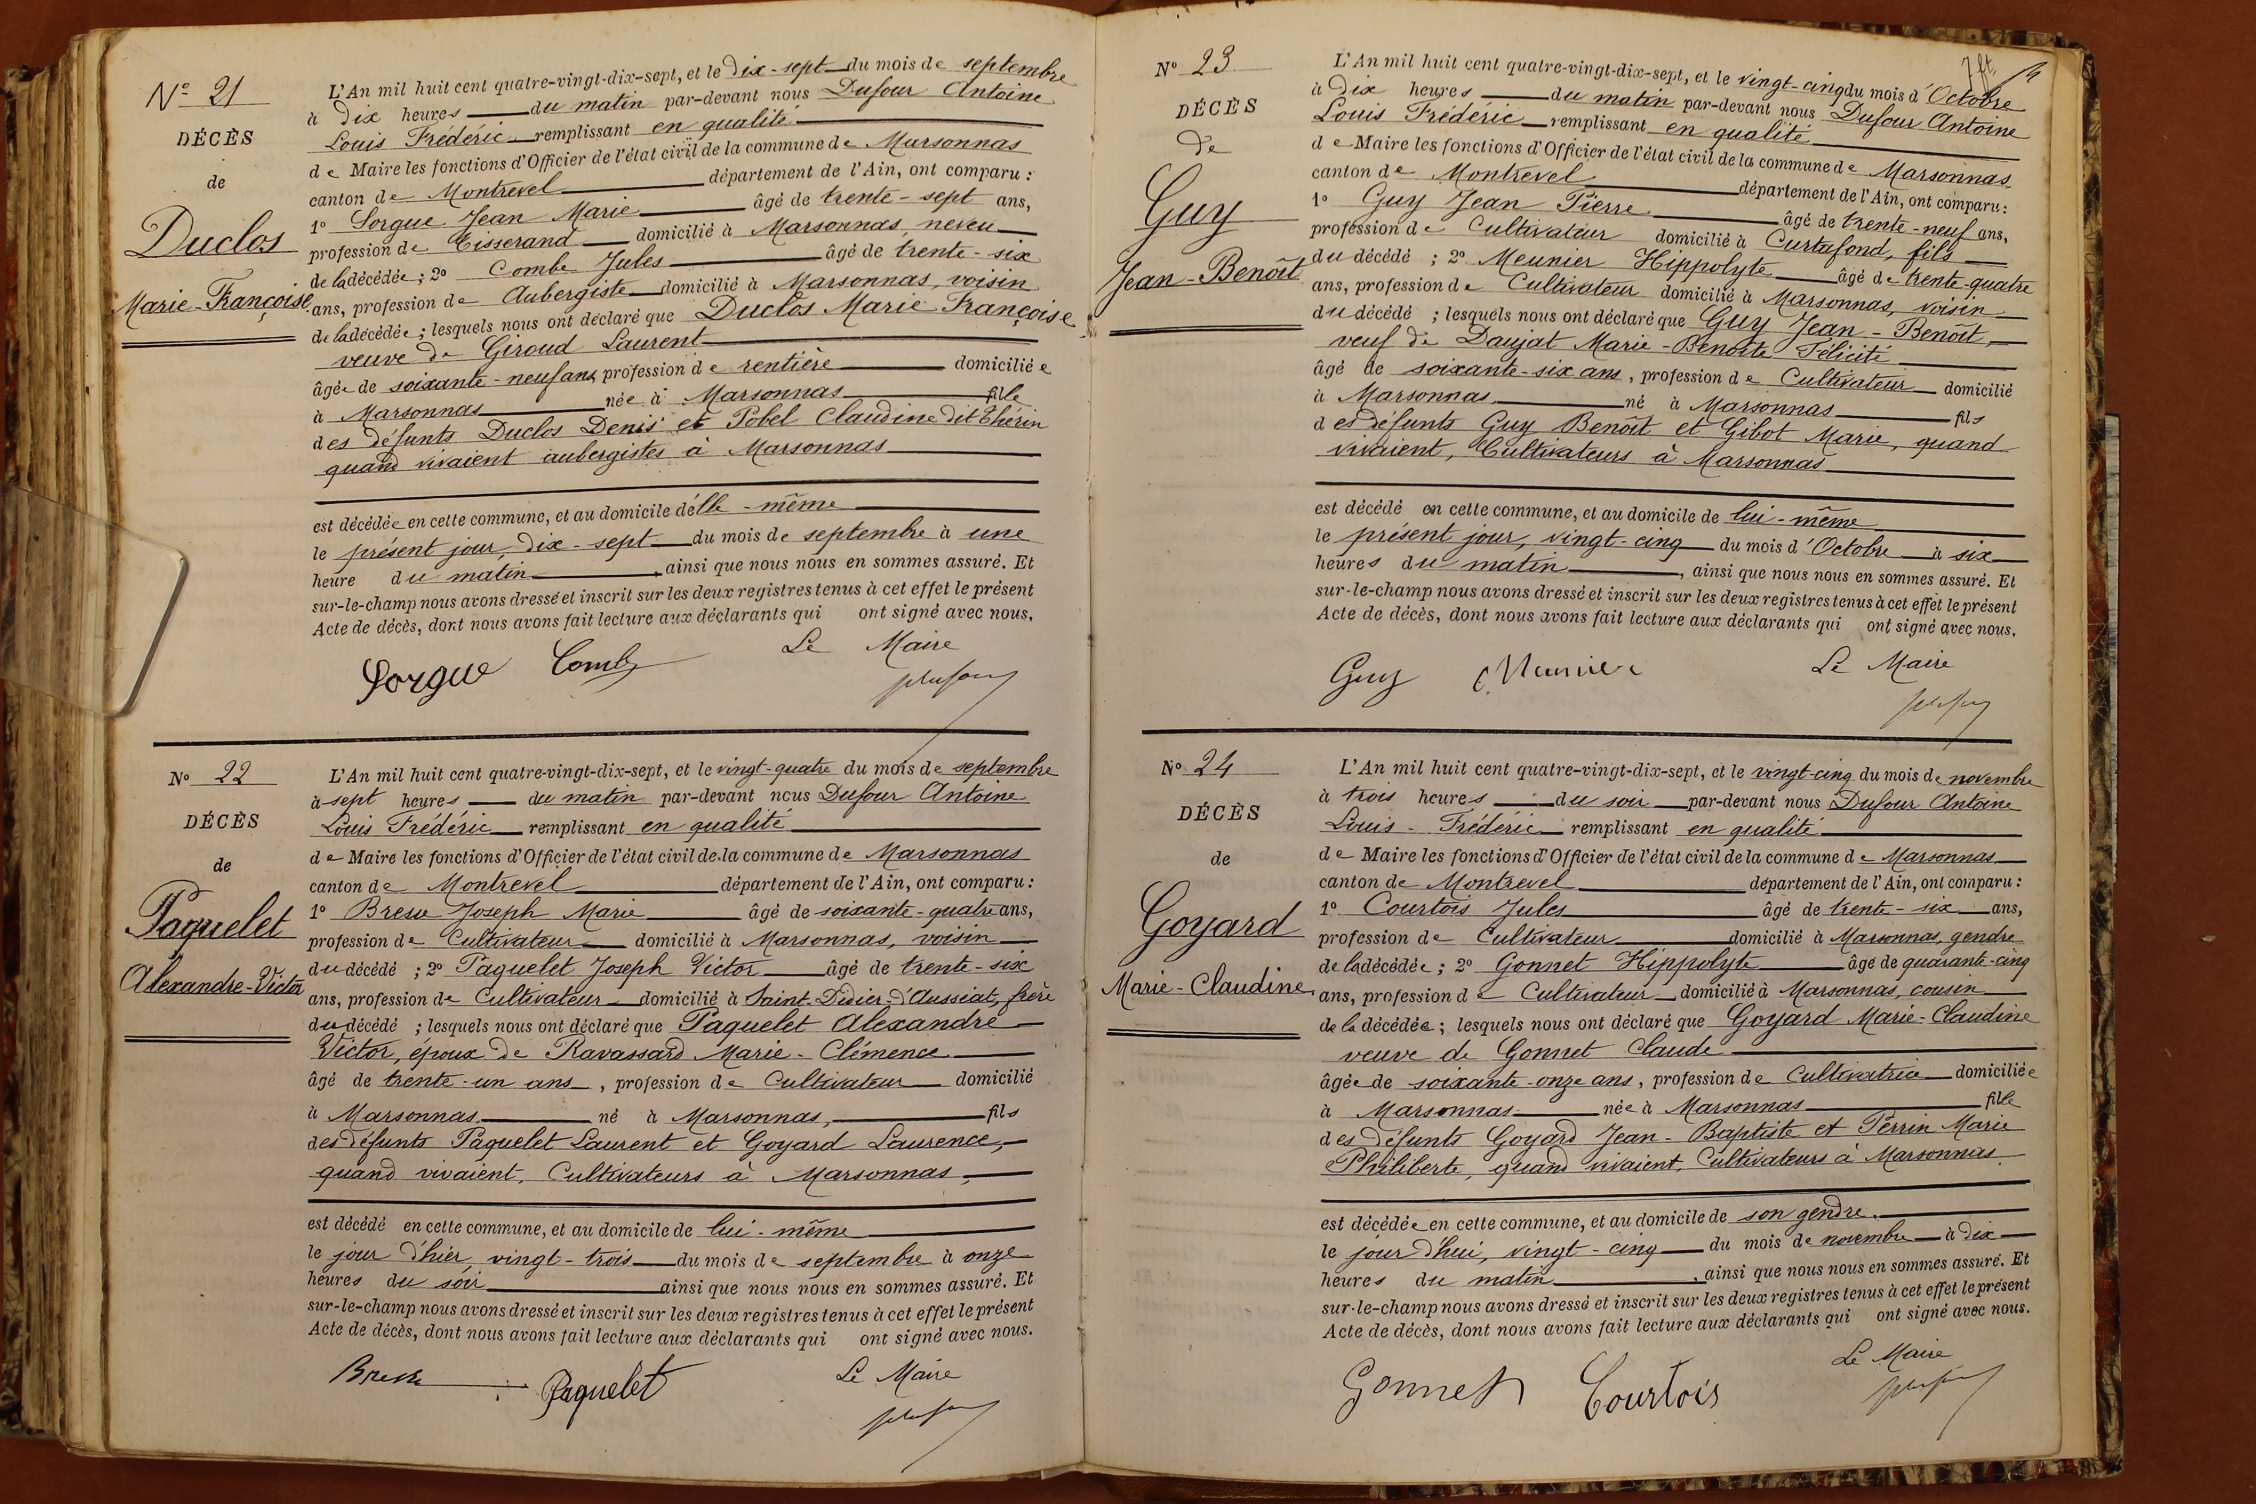 Nº 21
DÉCÈS
de
Duclos
Marie-Françoise
L'An mil huit cent quatre-vingt-dix-sept, et le dix-sept du mois de septembre
à dix heures du matin par-devant nous Dufour Antoine
Louis Frédéric remplissant en qualité
de Maire les fonctions d'Officier de l'état civil de la commune de Marsonnas
canton de Montrevel département de l'Ain, ont comparu :
1º Sorgue Jean Marie âgé de trente-sept ans,
profession de Tisserand domicilié à Marsonnas, neveu
de la décédée ; 2º Combe Jules âgé de trente-six
ans, profession de Aubergiste domicilié à Marsonnas, voisin
de la décédée ; lesquels nous ont déclaré que Duclos Marie Françoise
veuve de Giroud Laurent
âgée de soixante-neuf ans, profession de rentière domiciliée
à Marsonnas née à Marsonnas fille
des défunts Duclos Denis et Pobel Claudine dit Thérin
quand vivaient aubergistes à Marsonnas
est décédée en cette commune, et au domicile d'elle-même
le présent jour, dix-sept du mois de septembre à une
heure du matin, ainsi que nous nous en sommes assuré. Et
sur-le-champ nous avons dressé et inscrit sur les deux registres tenus à cet effet le présent
Acte de décès, dont nous avons fait lecture aux déclarants qui ont signé avec nous.
Le Maire
Sorgue Combe Dufour
Nº 22
DÉCÈS
de
Paquelet
Alexandre-Victor
L'An mil huit cent quatre-vingt-dix-sept, et le vingt-quatre du mois de septembre
à sept heures du matin par-devant nous Dufour Antoine
Louis Frédéric remplissant en qualité
de Maire les fonctions d'Officier de l'état civil de la commune de Marsonnas
canton de Montrevel département de l'Ain, ont comparu :
1º Joseph Marie âgé de soixante-quatre ans,
profession de Cultivateur domicilié à Marsonnas, voisin
du décédé ; 2º Paquelet Joseph Victor âgé de trente-six
ans, profession de Cultivateur domicilié à Saint-Didier-d'Aussiat, frère
du décédé ; lesquels nous ont déclaré que Paquelet Alexandre
Victor, époux de Ravassard Marie-Clémence
âgé de trente-un ans, profession de Cultivateur domicilié
à Marsonnas né à Marsonnas, fils
des défunts Paquelet Laurent et Goyard Laurence,
quand vivaient, Cultivateurs à Marsonnas,
est décédé en cette commune, et au domicile de lui-même
le jour d'hier, vingt-trois du mois de septembre à onze
heures du soir ainsi que nous nous en sommes assuré. Et
sur-le-champ nous avons dressé et inscrit sur les deux registres tenus à cet effet le présent
Acte de décès, dont nous avons fait lecture aux déclarants qui ont signé avec nous.
Le Maire
Paquelet Dufour
Nº 23
DÉCÈS
de
Guy
Jean-Benoît
L'An mil huit cent quatre-vingt-dix-sept, et le vingt-cinq du mois d'Octobre
à dix heures du matin par-devant nous Dufour Antoine
Louis Frédéric remplissant en qualité
de Maire les fonctions d'Officier de l'état civil de la commune de Marsonnas
canton de Montrevel département de l'Ain, ont comparu :
1º Guy Jean Pierre âgé de trente-neuf ans,
profession de Cultivateur domicilié à Curtafond, fils
du décédé ; 2º Meunier Hippolyte âgé de trente-quatre
ans, profession de Cultivateur domicilié à Marsonnas, voisin
du décédé ; lesquels nous ont déclaré que Guy Jean-Benoît,
veuf de Daujat Marie-Benoîte Félicité
âgé de soixante-six ans, profession de Cultivateur domicilié
à Marsonnas né à Marsonnas fils
des défunts Guy Benoît et Gibot Marie, quand
vivaient, Cultivateurs à Marsonnas
est décédé en cette commune, et au domicile de lui-même
le présent jour, vingt-cinq du mois d'Octobre à six
heures du matin, ainsi que nous nous en sommes assuré. Et
sur-le-champ nous avons dressé et inscrit sur les deux registres tenus à cet effet le présent
Acte de décès, dont nous avons fait lecture aux déclarants qui ont signé avec nous.
Le Maire
Guy Meunier Dufour
Nº 24
DÉCÈS
de
Goyard
Marie-Claudine
L'An mil huit cent quatre-vingt-dix-sept, et le vingt-cinq du mois de novembre
à trois heures du soir par-devant nous Dufour Antoine
Louis-Frédéric remplissant en qualité
de Maire les fonctions d'Officier de l'état civil de la commune de Marsonnas
canton de Montrevel département de l'Ain, ont comparu :
1º Courtois Jules âgé de trente-six ans,
profession de Cultivateur domicilié à Marsonnas, gendre
de la décédée ; 2º Gonnet Hippolyte âgé de quarante-cinq
ans, profession de Cultivateur domicilié à Marsonnas, cousin
de la décédée ; lesquels nous ont déclaré que Goyard Marie-Claudine
veuve de Gonnet Claude
âgée de soixante-onze ans, profession de Cultivatrice domiciliée
à Marsonnas née à Marsonnas fille
des défunts Goyard Jean-Baptiste et Perrin Marie
Philiberte, quand vivaient, Cultivateurs à Marsonnas.
est décédée en cette commune, et au domicile de son gendre.
le jour d'hui, vingt-cinq du mois de novembre à dix
heures du matin, ainsi que nous nous en sommes assuré. Et
sur-le-champ nous avons dressé et inscrit sur les deux registres tenus à cet effet le présent
Acte de décès, dont nous avons fait lecture aux déclarants qui ont signé avec nous.
Le Maire
Gonnet Courtois Dufour